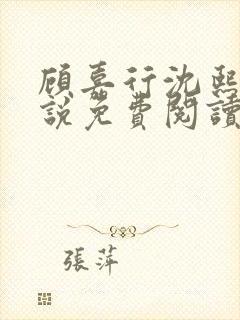 顧嘉行沈熙
說免費閱讀
張萍